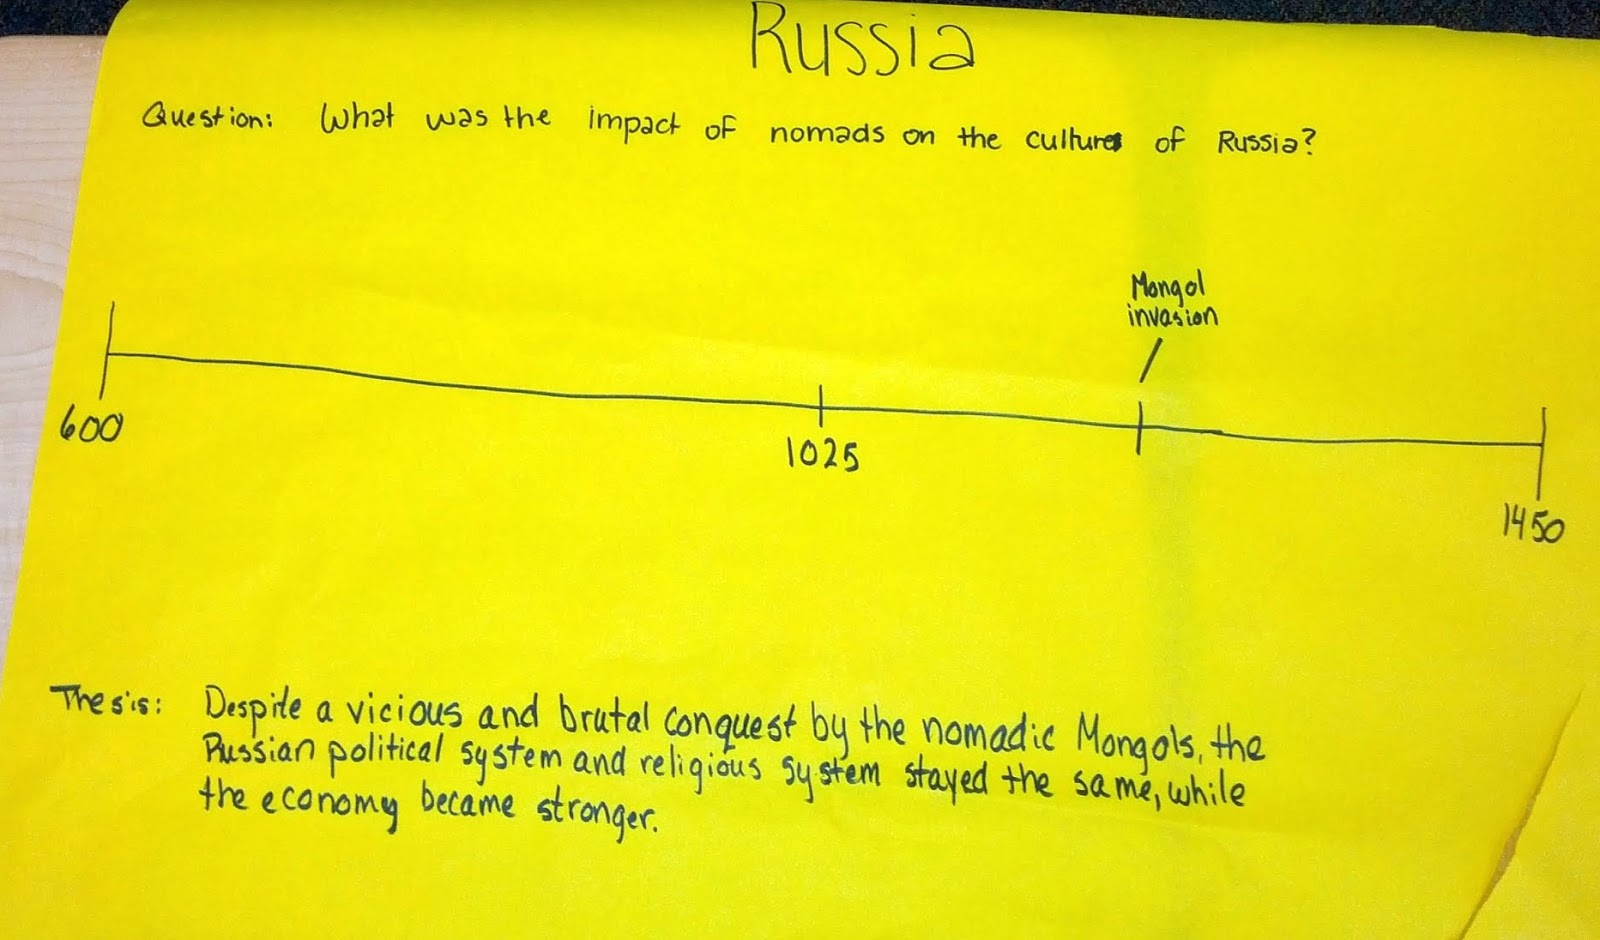 Russia
Question: What was the impact of nomads on the culture of Russia?
Mongol
invasion
600
1025
1450
Thesis: Despite a vicious and brutal conquest by the nomadic Mongols, the
Russian political system and religious system stayed the same, while
the economy became stronger.